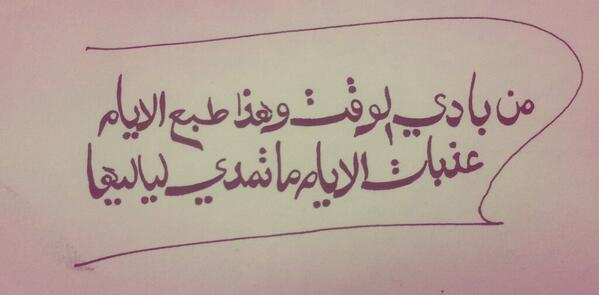 من بادي الوقت وهذا طبع الايام
عذبات الايام ما تمدي لياليها